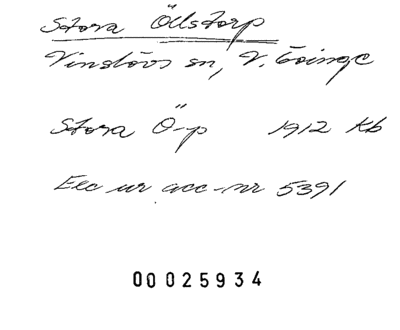 Stora Öllstorp
Vinslövs sn, V. Göinge
Stora Ö-p 1912 Kb
Exc ur acc-nr 5391
00025934